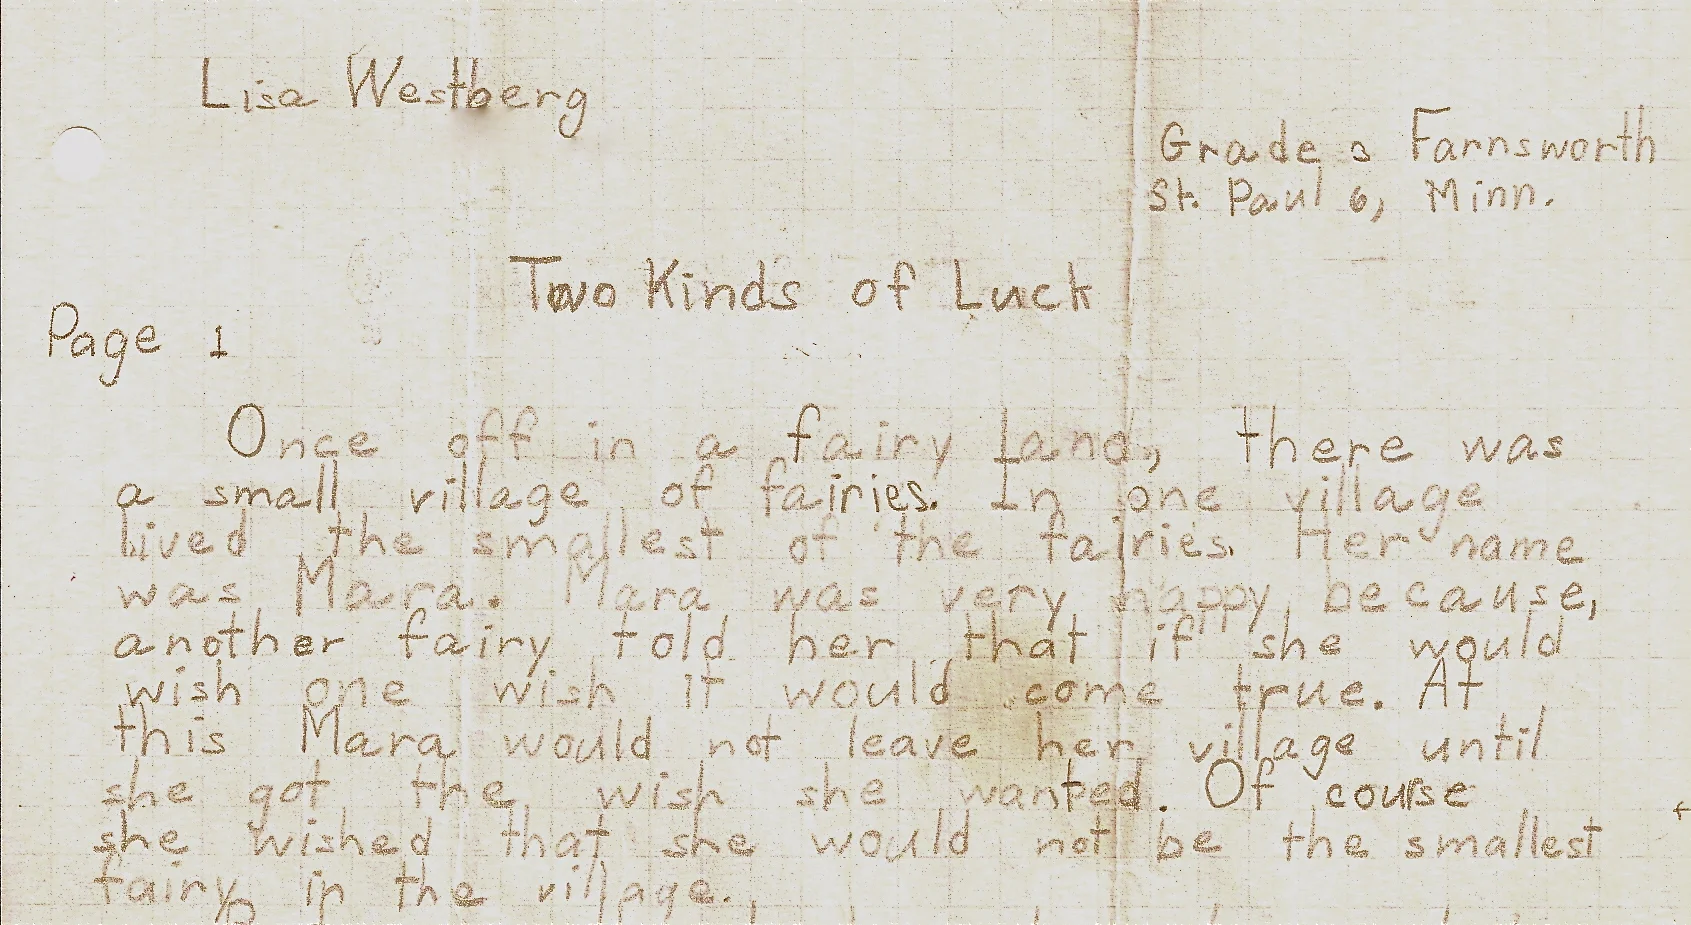 Lisa Westberg
Grade 3 Farnsworth
St. Paul 6, Minn.
Two Kinds of Luck
Page 1
Once off in a fairy land, there was
a small village of fairies. In one village
lived the smallest of the fairies. Her name
was Mara. Mara was very happy because,
another fairy told her that if she would
wish one wish it would come true. At
this Mara would not leave her village until
she got the wish she wanted. Of course
she wished that she would not be the smallest
fairy in the village.